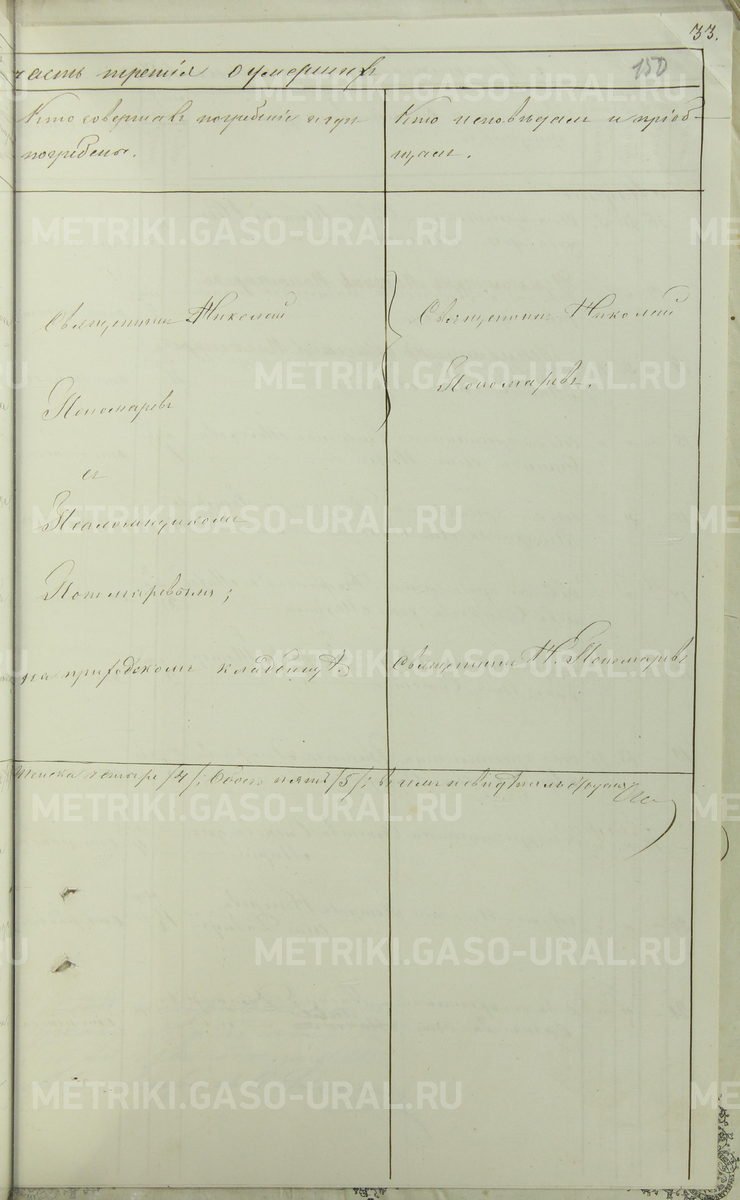 33.
150
часть третія о умершихъ
Кто совершалъ погребеніе и гдѣ
погребены.
Кто исповѣдалъ и пріоб-
щалъ.
Священникъ Николай
Пономаревъ
и
Псаломщикомъ
Пономаревымъ;
на приходскомъ кладбищѣ.
Священникъ Николай
Пономаревъ.
Священникъ Н. Пономаревъ
Женска четыре /4/; Обоего пять /5/;
METRIKI.GASO-URAL.RU